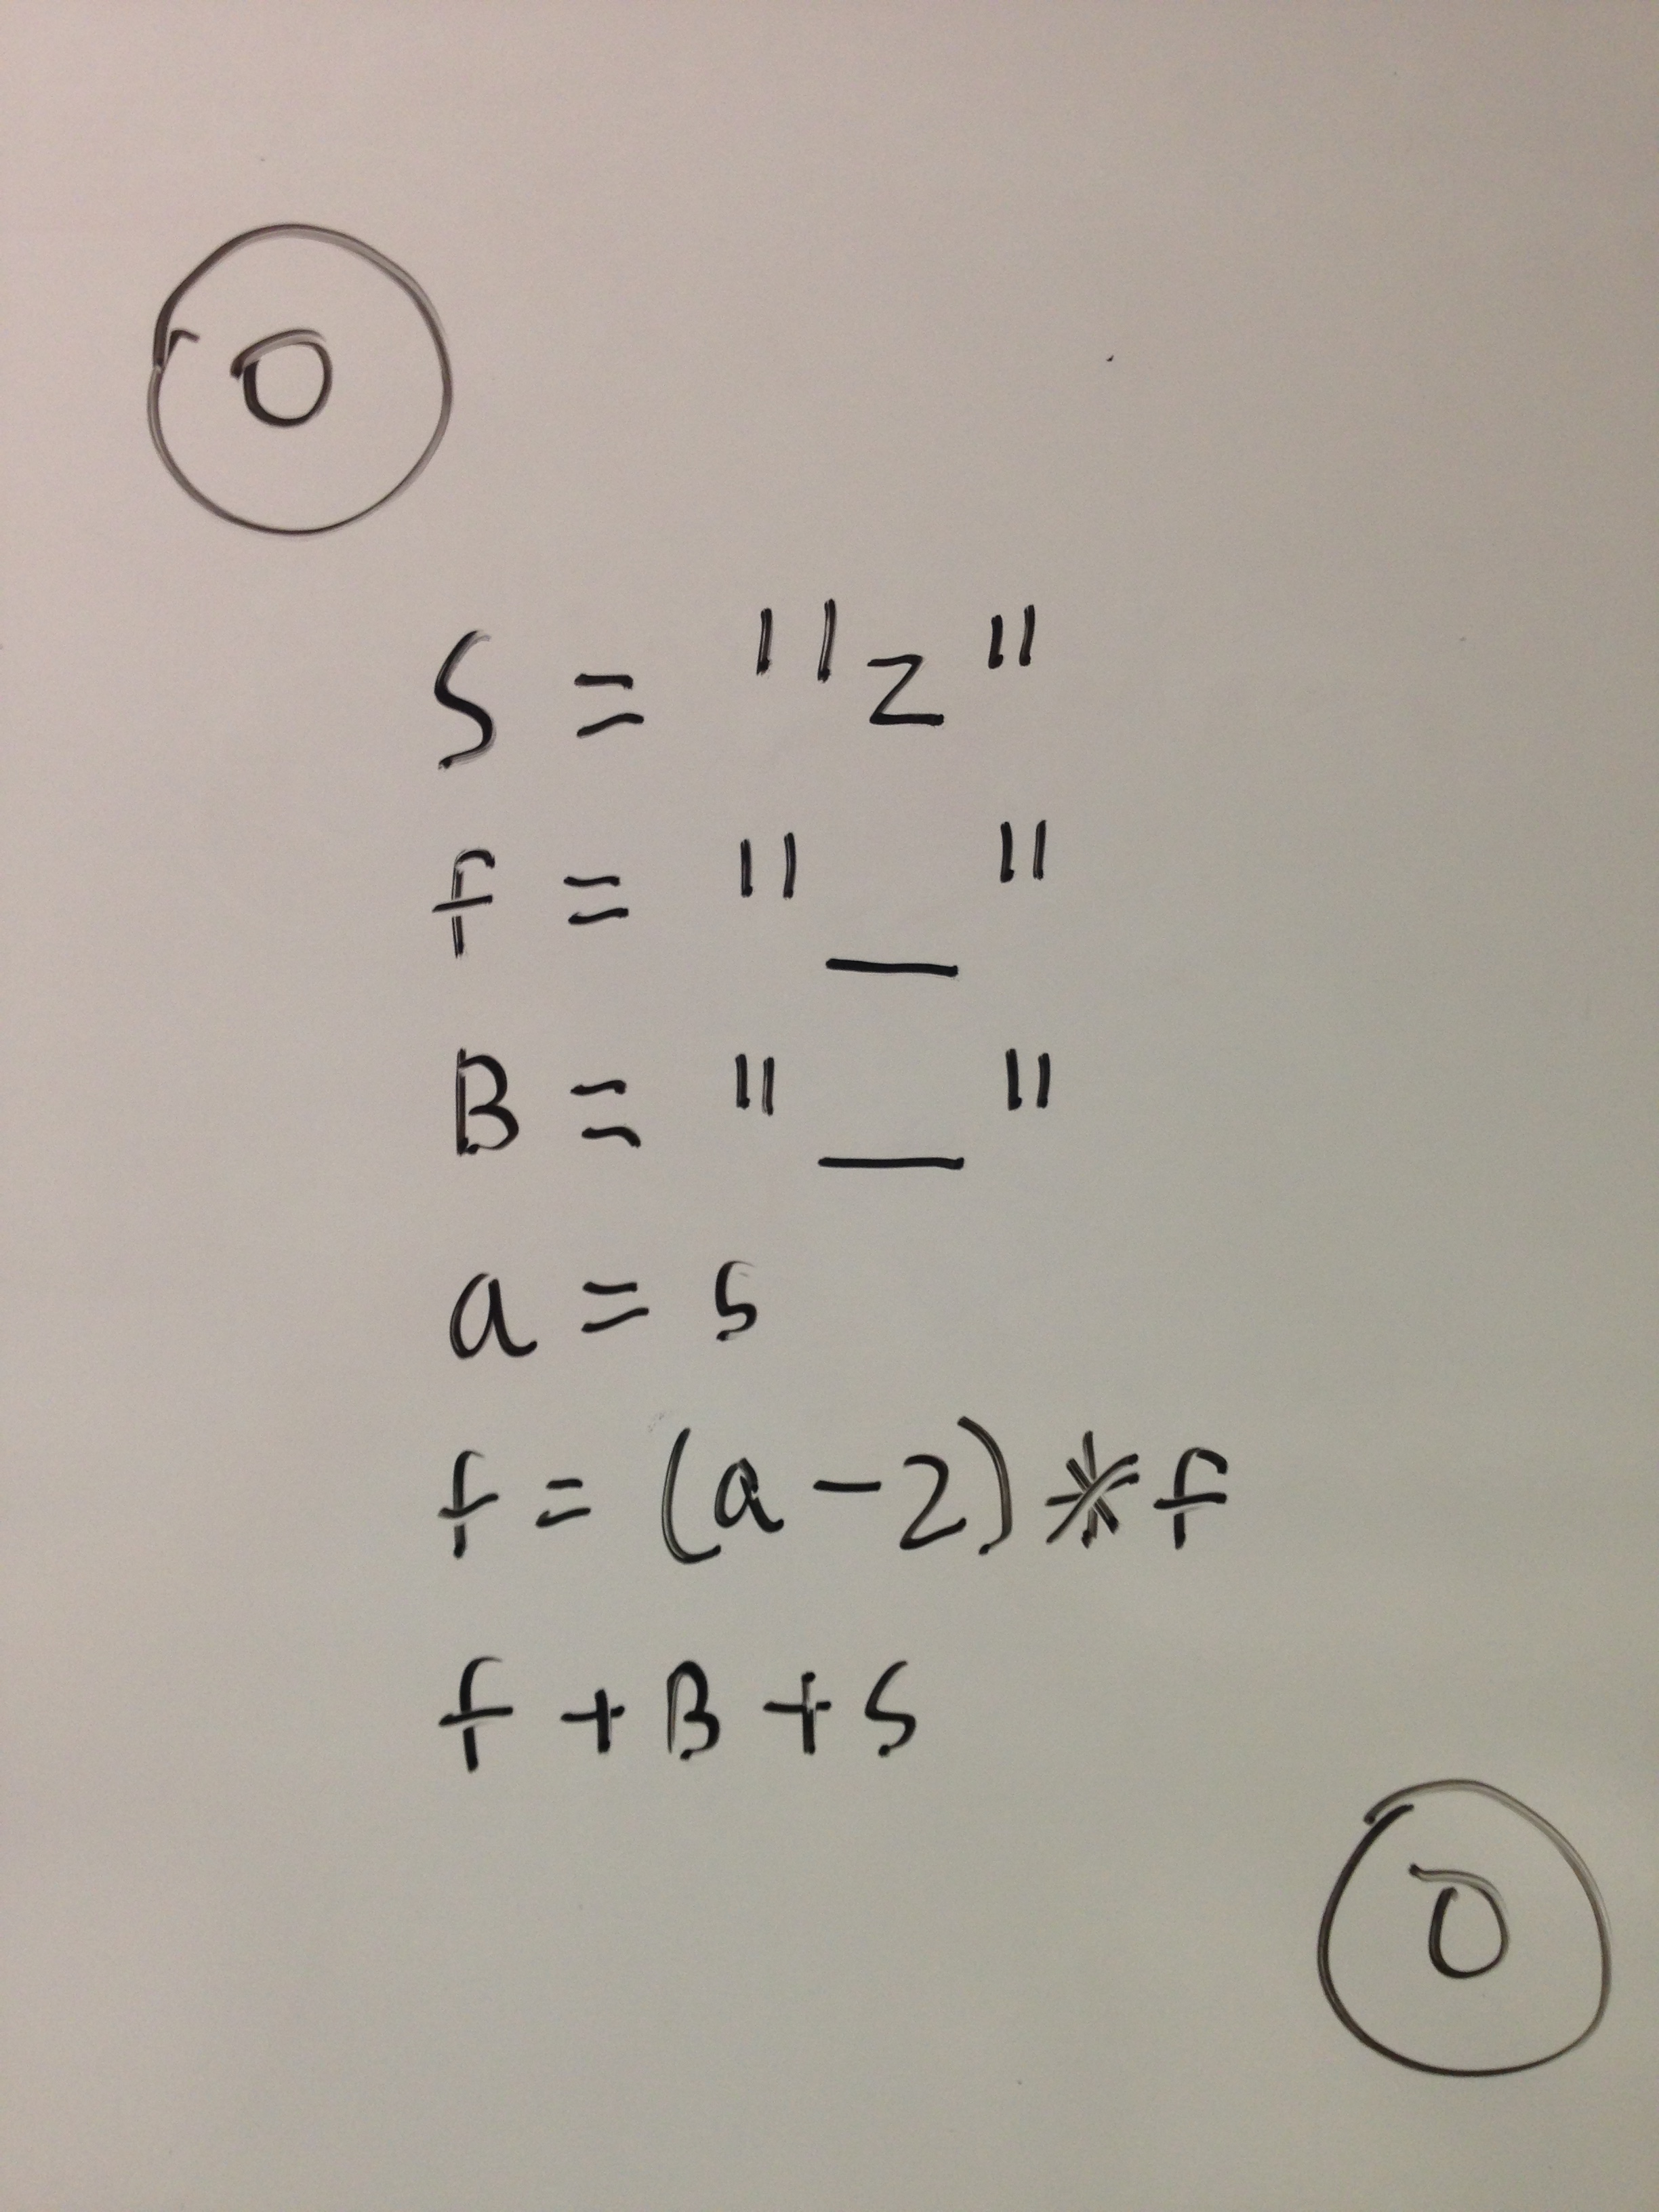 O
S = "z"
f = "_"
B = "_"
a = 5
f = (a-2)*f
f + B + S
O